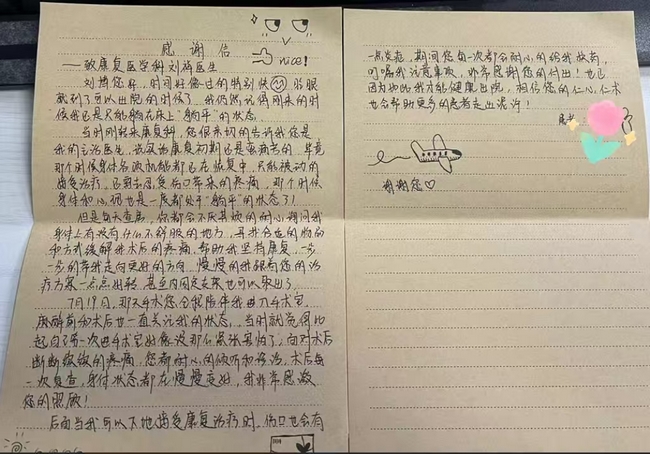 感谢信
nice!
——致康复医学科刘祥医生
刘博您好，时间好像过的特别快 转眼
就到了可以出院的时候了，我仍然记得刚来的时
候我也是只能躺在床上“躺平”的状态
当时刚转来康复科，您很亲切的告诉我您是
我的主治医生，说实话康复初期还是蛮痛苦的，毕竟
那个时候身体各项机能都还在恢复中，只能被动的
接受治疗，还要去忍受伤口带来的疼痛，那个时候
身体和心理也是一度都处于“躺平”的状态了！
但是每天查房，你都会不厌其烦的耐心询问我
身体上有没有什么不舒服的地方，再找合适的药物
和方式缓解我术后的疼痛，帮助我坚持康复，一步
一步的带我走向更好的方向，慢慢的我跟着您的治
疗方案一点点好转，甚至内固定支架也可以取出了。
7月19日，那天手术您全程陪伴我进入手术室，
麻醉前和术后也一直关注我的状态，当时就觉得比
起自己第一次进手术室好像没那么紧张害怕了，面对术后
断断续续的疼痛，您都耐心的倾听和诊治，术后每
一次复查，身体状态都在慢慢变好，我非常感激
您的照顾！
后面当我可以下地接受康复治疗时，伤口也会有
一点发炎，期间您每一次都会耐心的给我换药，
叮嘱我注意事项，非常感谢您的付出！也正
因为如此我才能健康出院，相信您的仁心仁术
也会帮助更多的患者走出泥泞！
谢谢您♡